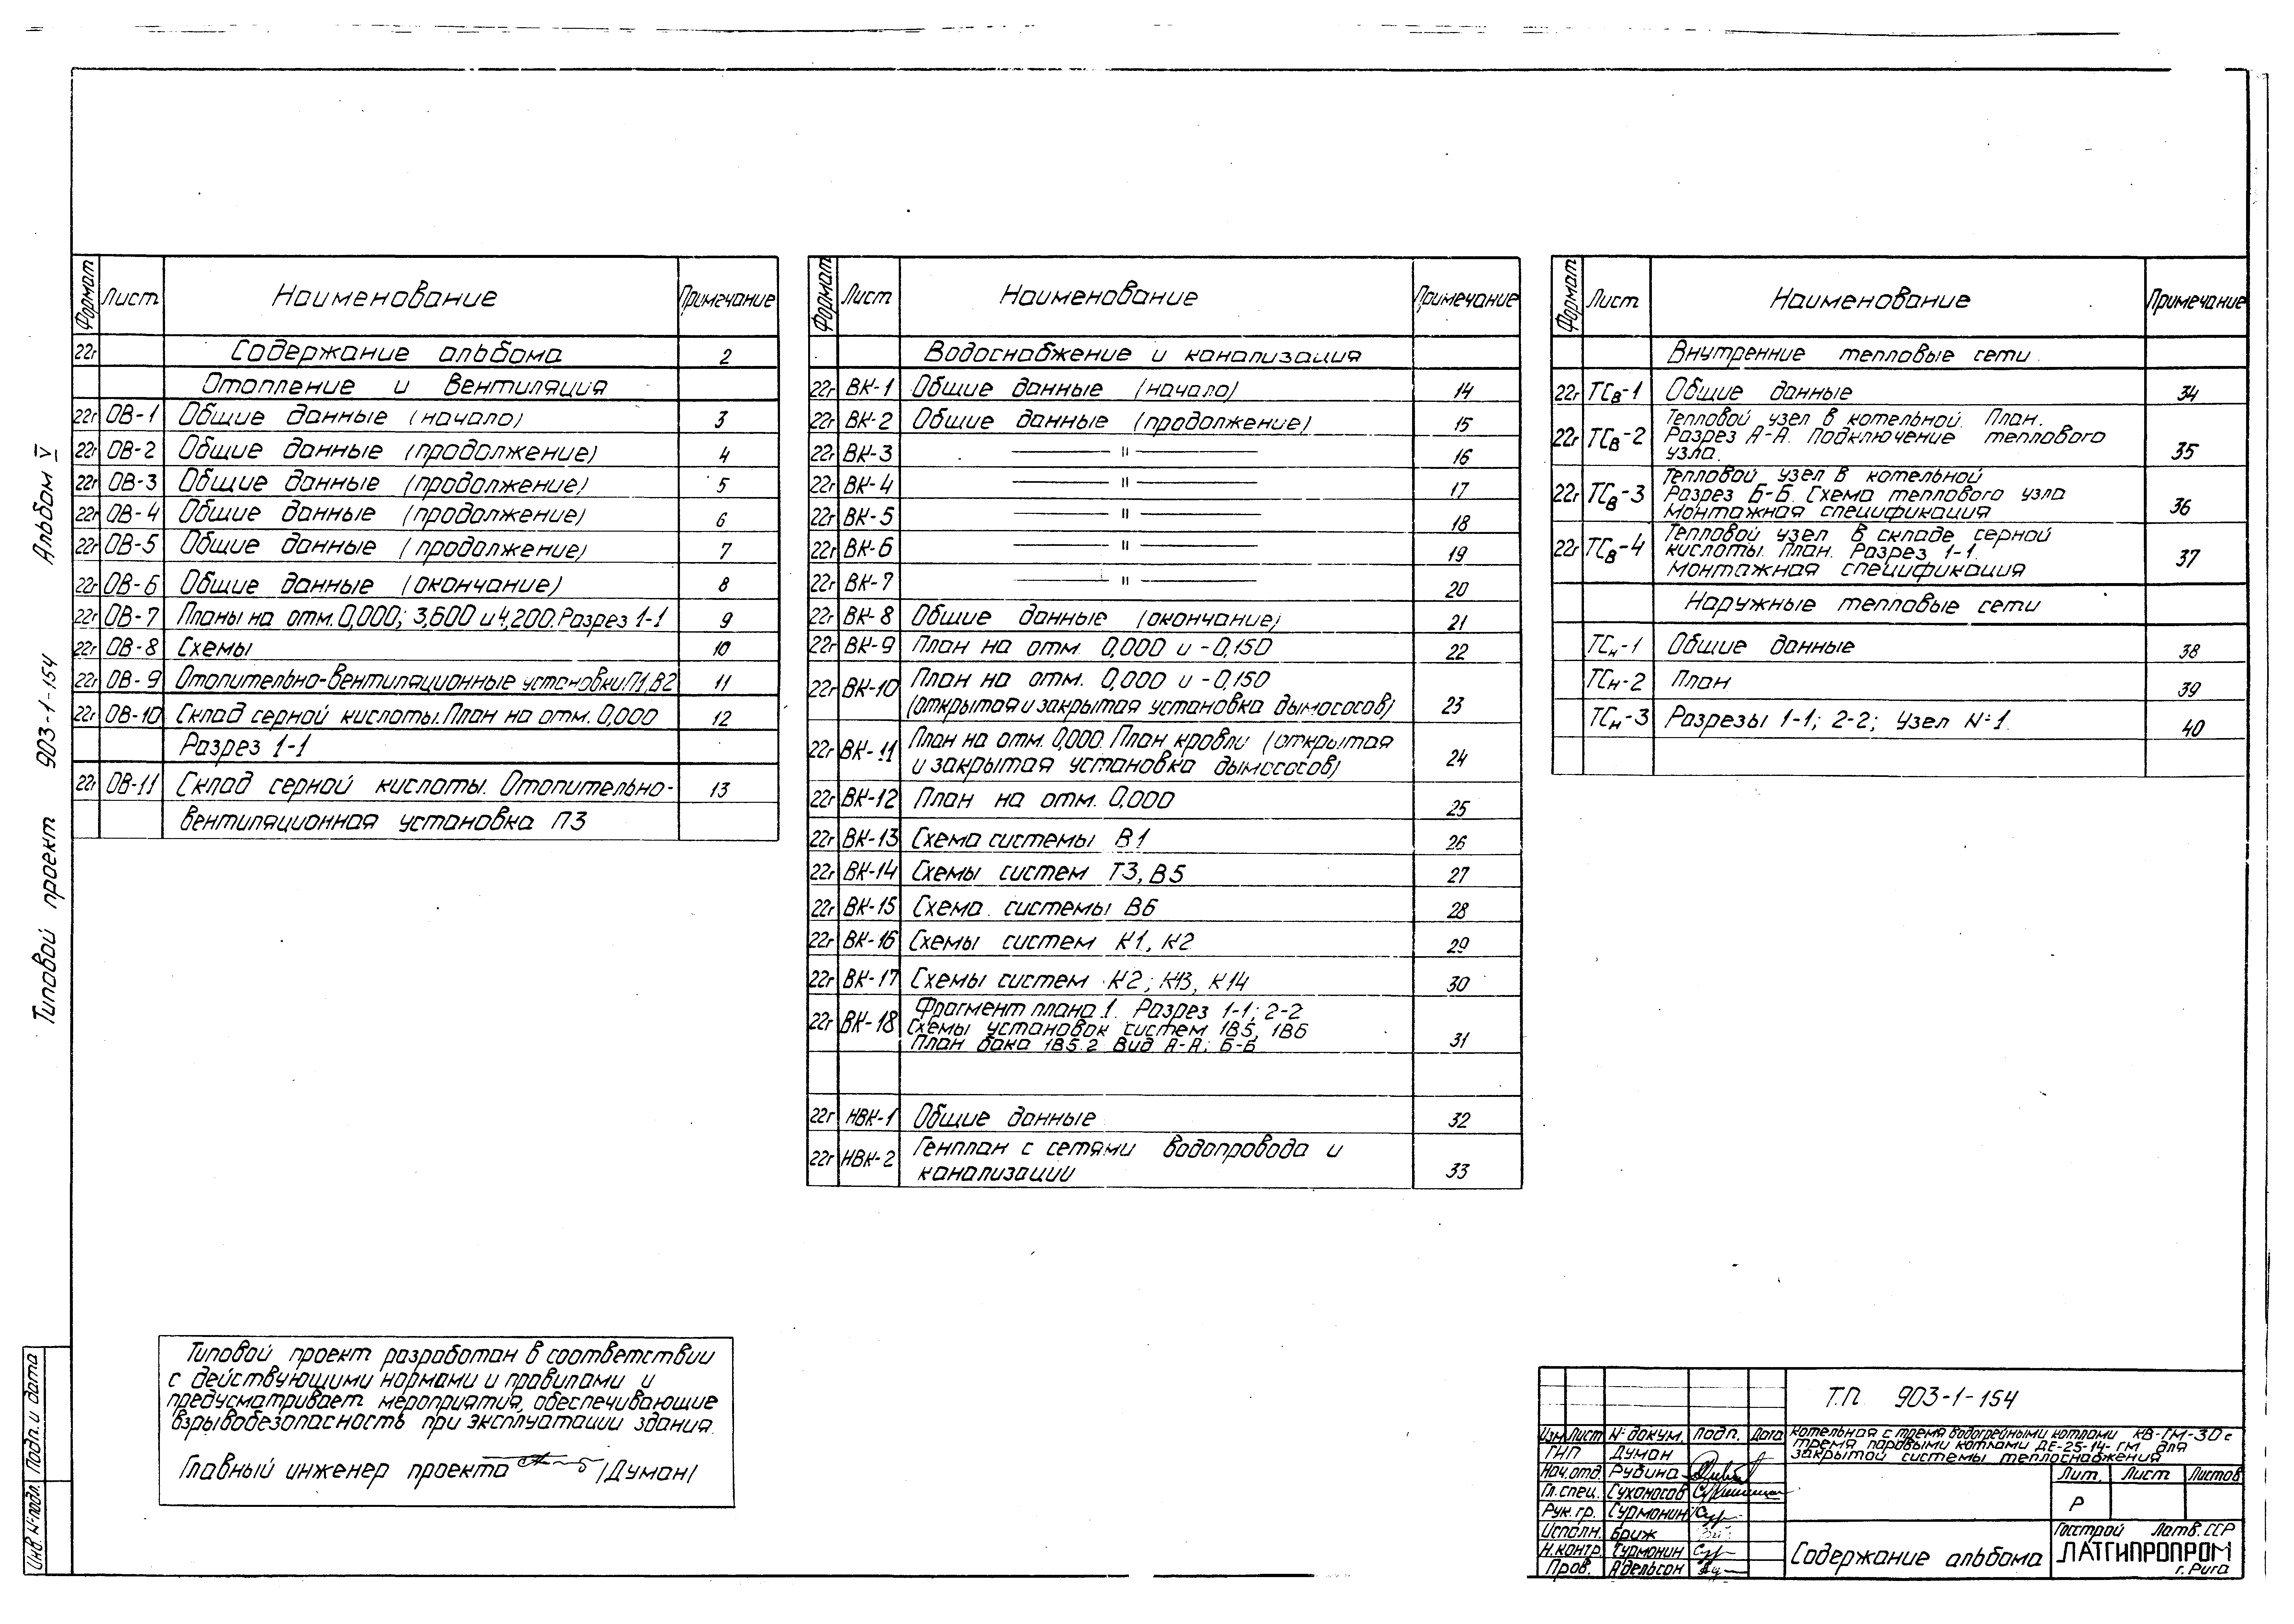 Типовой проект 903-1-154 Альбом V
Формат Лист Наименование Примечание
22г Содержание альбома 2
Отопление и вентиляция
22г ОВ-1 Общие данные (начало) 3
22г ОВ-2 Общие данные (продолжение) 4
22г ОВ-3 Общие данные (продолжение) 5
22г ОВ-4 Общие данные (продолжение) 6
22г ОВ-5 Общие данные (продолжение) 7
22г ОВ-6 Общие данные (окончание) 8
22г ОВ-7 Планы на отм. 0,000; 3,600 и 4,200. Разрез 1-1 9
22г ОВ-8 Схемы 10
22г ОВ-9 Отопительно-вентиляционные установки П1, В2 11
22г ОВ-10 Склад серной кислоты. План на отм. 0,000 12
Разрез 1-1
22г ОВ-11 Склад серной кислоты. Отопительно- 13
вентиляционная установка П3
Формат Лист Наименование Примечание
Водоснабжение и канализация
22г ВК-1 Общие данные (начало) 14
22г ВК-2 Общие данные (продолжение) 15
22г ВК-3 — " — 16
22г ВК-4 — " — 17
22г ВК-5 — " — 18
22г ВК-6 — " — 19
22г ВК-7 — " — 20
22г ВК-8 Общие данные (окончание) 21
22г ВК-9 План на отм. 0,000 и -0,150 22
22г ВК-10 План на отм. 0,000 и -0,150
(открытая и закрытая установка дымососов) 23
22г ВК-11 План на отм. 0,000. План кровли (открытая
и закрытая установка дымососов) 24
22г ВК-12 План на отм. 0,000 25
22г ВК-13 Схема системы В1 26
22г ВК-14 Схемы систем Т3, В5 27
22г ВК-15 Схема системы В6 28
22г ВК-16 Схемы систем К1, К2 29
22г ВК-17 Схемы систем К2; К13, К14 30
22г ВК-18 Фрагмент плана 1. Разрез 1-1; 2-2
Схемы установок систем 1В5, 1В6
План бака 1В5.2 Вид А-А; Б-Б 31
22г НВК-1 Общие данные 32
22г НВК-2 Генплан с сетями водопровода и
канализации 33
Формат Лист Наименование Примечание
Внутренние тепловые сети
22г ТСв-1 Общие данные 34
22г ТСв-2 Тепловой узел в котельной. План.
Разрез А-А. Подключение теплового
узла. 35
22г ТСв-3 Тепловой узел в котельной
Разрез Б-Б. Схема теплового узла
Монтажная спецификация 36
22г ТСв-4 Тепловой узел в складе серной
кислоты. План. Разрез 1-1.
Монтажная спецификация 37
Наружные тепловые сети
ТСн-1 Общие данные 38
ТСн-2 План 39
ТСн-3 Разрезы 1-1; 2-2; Узел №1. 40
Типовой проект разработан в соответствии
с действующими нормами и правилами и
предусматривает мероприятия, обеспечивающие
взрывобезопасность при эксплуатации здания.
Главный инженер проекта /Думан/
Инв. № подл. Подп. и дата
Т.П. 903-1-154
Изм Лист № докум. Подп. Дата
ГИП Думан
Нач. отд. Рубина
Гл. спец. Сухоносов
Рук. гр. Сурмонин
Исполн. Бриж
Н. контр. Сурмонин
Пров. Адельсон
Котельная с тремя водогрейными котлами КВ-ГМ-30 с
тремя паровыми котлами ДЕ-25-14-ГМ для
закрытой системы теплоснабжения
Лит. Лист Листов
Р
Содержание альбома
Госстрой Латв. ССР
ЛАТГИПРОПРОМ
г. Рига